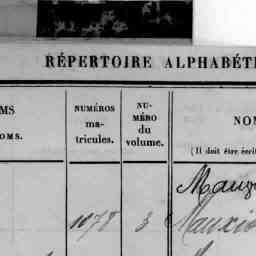 RÉPERTOIRE ALPHABÉT
MS
OMS.
NUMÉROS
ma-
tricules.
NU-
MÉRO
du
volume.
NOM
(Il doit être écrit
1078 3